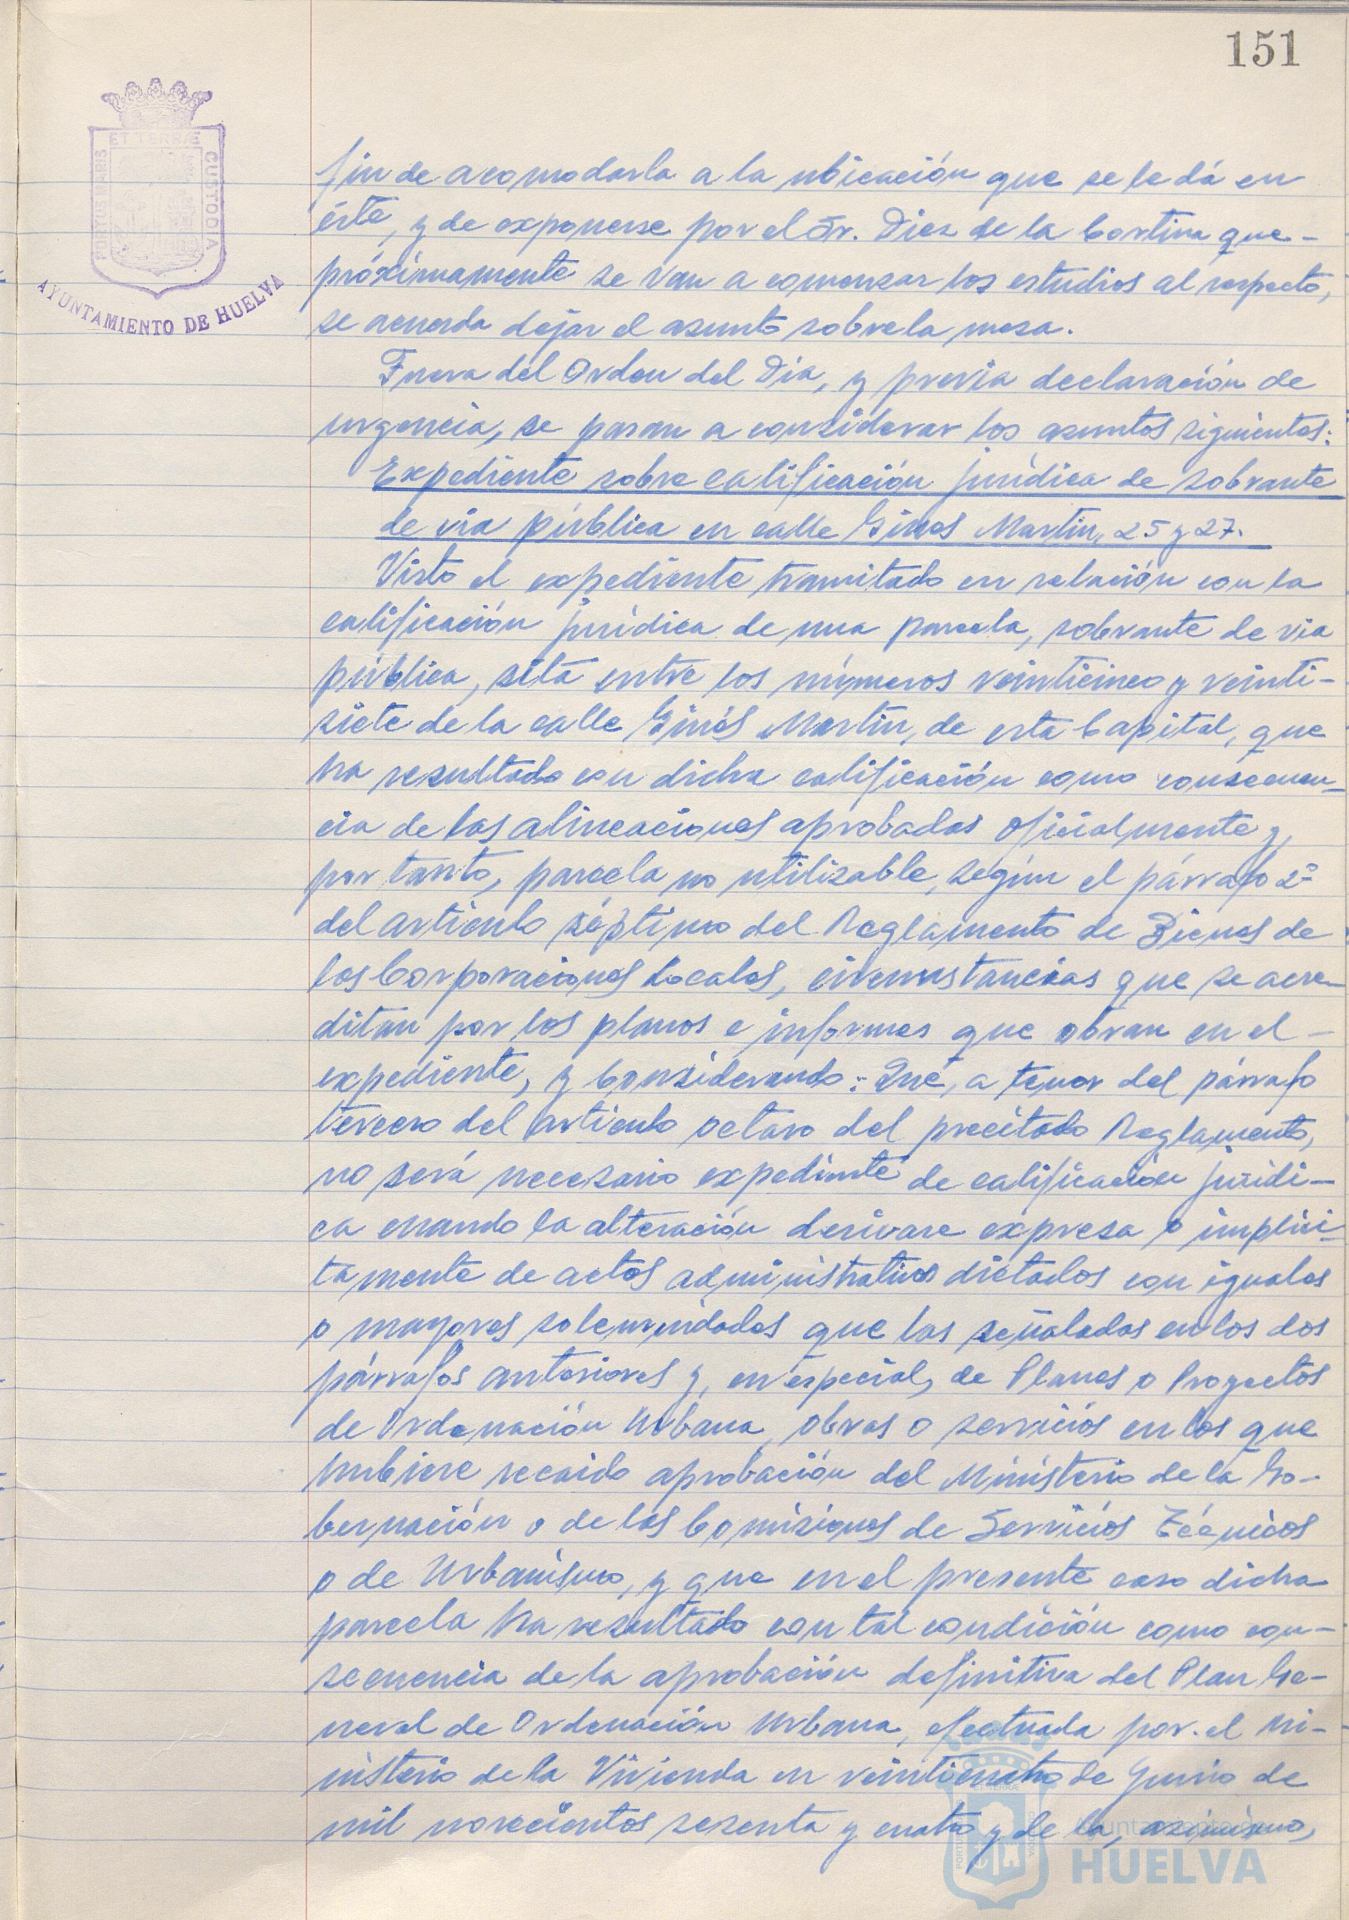 151
PORTUS MARIS
ET TERRÆ
CUSTODIA
AYUNTAMIENTO DE HUELVA
fin de acomodarla a la ubicación que se le dá en
éste, y de exponerse por el Sr. Diez de la Cortina que-
próximamente se van a comenzar los estudios al respecto,
se acuerda dejar el asunto sobre la mesa.
Fuera del Orden del Dia, y previa declaración de
urgencia, se pasan a considerar los asuntos siguientes:
Expediente sobre calificación jurídica de sobrante
de via pública en calle Ginés Martín, 25 y 27.
Visto el expediente tramitado en relación con la
calificación jurídica de una parcela, sobrante de via
pública, sita entre los números veinticinco y veinti-
siete de la calle Ginés Martín, de esta Capital, que
ha resultado con dicha calificación como consecuen-
cia de las alineaciones aprobadas oficialmente y,
por tanto, parcela no utilizable, según el párrafo 2º
del artículo séptimo del Reglamento de Bienes de
las Corporaciones Locales, circunstancias que se acre-
ditan por los planos e informes que obran en el-
expediente, y Considerando: Que, a tenor del párrafo
tercero del artículo octavo del precitado Reglamento,
no será necesario expediente de calificación jurídi-
ca cuando la alteración derivare expresa o implíci-
tamente de actos administrativos dictados con iguales
o mayores solemnidades que las señaladas en los dos
párrafos anteriores y, en especial, de Planes o Proyectos
de Ordenación Urbana, obras o servicios en los que
hubiere recaido aprobación del Ministerio de la Go-
bernación o de las Comisiones de Servicios Técnicos
o de Urbanismo, y que en el presente caso dicha
parcela ha resultado con tal condición como con-
secuencia de la aprobación definitiva del Plan Ge-
neral de Ordenación Urbana, efectuada por el Mi-
nisterio de la Vivienda en veinticuatro de Junio de
mil novecientos sesenta y cuatro y de la, asimismo,
Ayuntamiento de
HUELVA